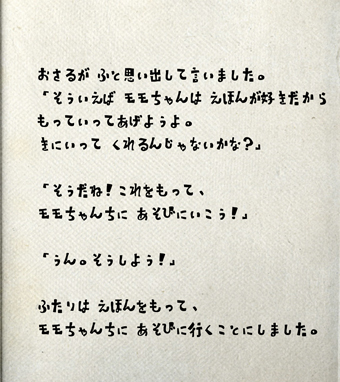 おさるが ふと思い出して言いました。
「そういえば モモちゃんは えほんが好きだから
もっていってあげようよ。
きにいって くれるんじゃないかな?」
「そうだね!これをもって、
モモちゃんちに あそびにいこう!」
「うん。そうしよう!」
ふたりは えほんをもって、
モモちゃんちに あそびに行くことにしました。